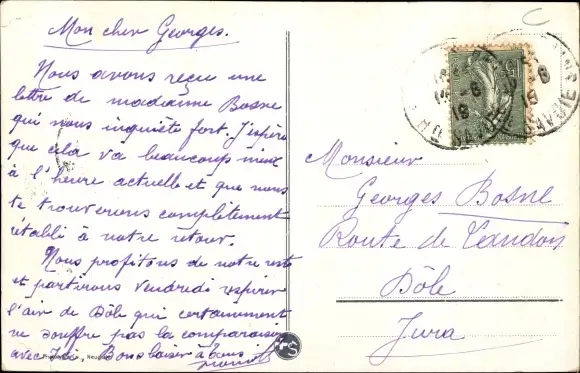 Mon cher Georges.
Nous avons reçu une
lettre de madame Bosne
qui nous inquiète fort. J'espère
que cela va beaucoup mieux
à l'heure actuelle et que nous
te trouverons complètement
établi à notre retour.
Nous profitons de notre reste
et partirons Vendredi respirer
l'air de Dôle qui certainement
ne souffre pas la comparaison
avec Bons baisers à tous
Monsieur
Georges Bosne
Route de Landon
Dôle
Jura